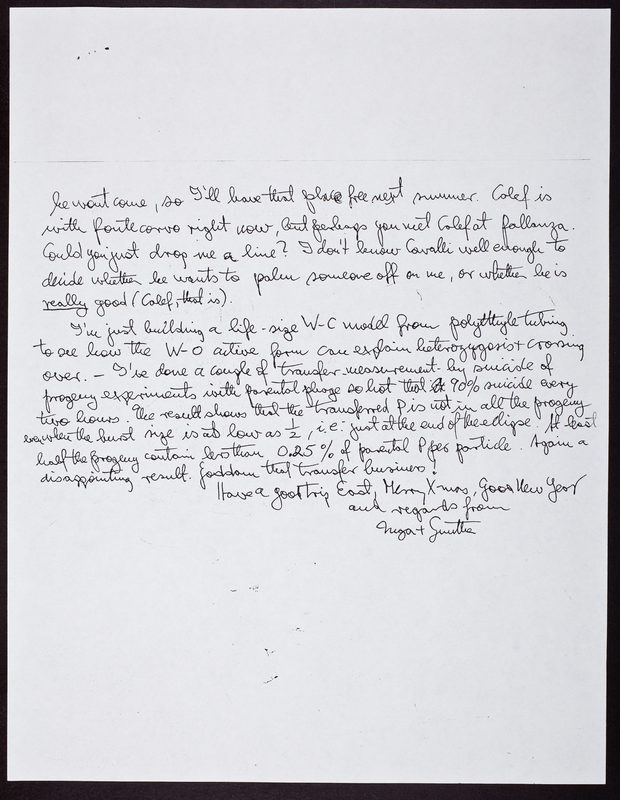 he wont come, so I'll have that place free next summer. Colef is
with Pontecorvo right now, but perhaps you met Colef at Pallanza.
Could you just drop me a line? I don't know Cavalli well enough to
decide whether he wants to palm someone off on me, or whether he is
really good (Colef, that is).
I'm just building a life-size W-C model from polyethyle tubing
to see how the W-O active form can explain heterozygosis + crossing
over. — I've done a couple of transfer-measurement-by suicide of
progeny experiments with parental phage so hot that 90% suicide every
two hours. The result shows that the transferred P is not in all the progeny
even when the burst size is as low as 1/2, i.e: just at the end of the eclipse. At least
half the progeny contain less than 0.25% of parental P per particle. Again a
disappointing result. Goddam that transfer business!
Have a good trip East, Merry X-mas, Good New Year
and regards from
Inga + Gunther